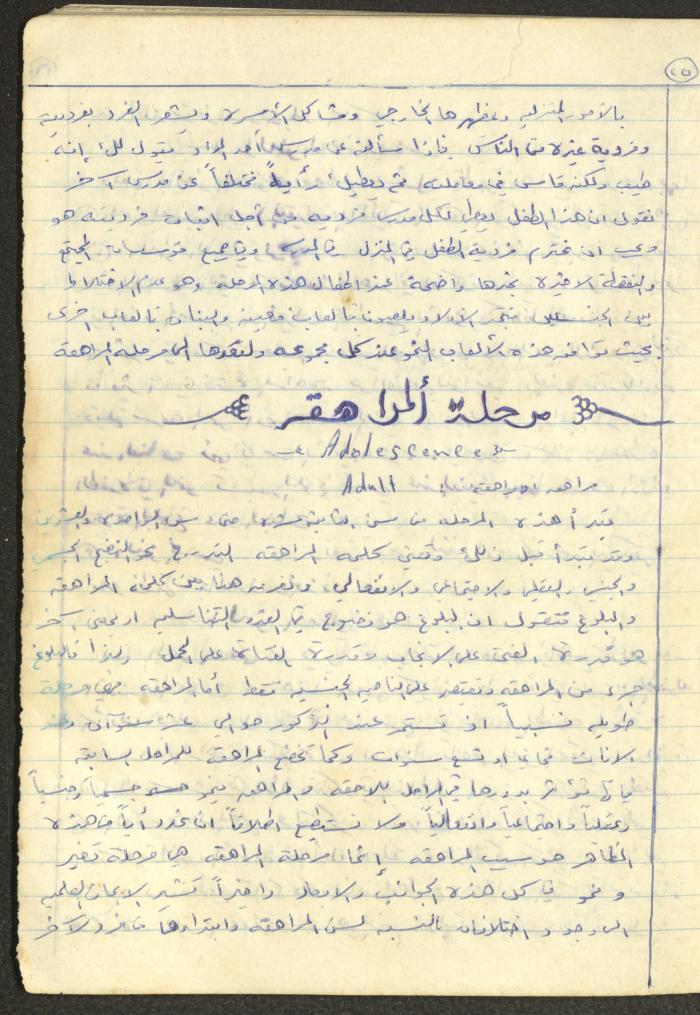 ٢٥
بالأمور المنزليه ومظهرها الخارجي ومشاكل الأسرة ويشعر الفرد بفرديته
وفردية غيره من الناس فإذا سألته عن مدرس أحد المواد يقول لك إنه
طيب ولكنه قاسي في معاملته ثم يعطيك رأياً مختلفاً عن مدرس آخر
نقول ان هذا الطفل يعطي لكل مدرس فرديه من أجل اثبات فرديته هو
ويجب ان نحترم فردية الطفل في المنزل في المدرسه وفي جميع مؤسسات المجتمع
والنقطة الاخيرة نجدها واضحة عند اطفال هذه المرحلة وهو عدم الاختلاط
بين الجنسين فنجد الأولاد يلعبون بألعاب معينه والبنات بألعاب اخرى
بحيث توافق هذه الألعاب النمو عند كل مجموعه ولنعدها الى مرحلة المراهقة
مرحلة ألمراهقه
Adolescence
مراهق او مراهقة Adult
تبدأ هذه المرحله من سن الثانية عشرة حتى سن الواحده والعشرين
وقد تبدأ قبل ذلك وتعني كلمة المراهقه التدرج نحو النضج الجسمي
والجنسي والعقلي والاجتماعي والانفعالي ونفرق هنا بين كلمة المراهقه
والبلوغ فتقول ان البلوغ هو نضوج في الغدد التناسليه او بمعنى آخر
هو قدرة الفتى على الانجاب وقدرة الفتاة على الحمل ولهذا فالبلوغ
جزء من المراهقه وتقتصر على الناحيه الجنسيه فقط أما المراهقه فهي مرحلة
طويله نسبياً اذ تستمر عند الذكور حوالي عشر سنوات وعند
الاناث ثماني او تسع سنوات وكما تخضع المراهقة للمراحل السابقه
فإنها تؤثر بدورها في المراحل اللاحقه والمراهق ينمو جسمياً وجنسياً
وعقلياً واجتماعياً وانفعالياً ولا نستطيع اطلاقاً ان نحدد أياً من هذه
المظاهر هو سبب المراهقه إنما مرحلة المراهقه هي مرحلة تغير
ونمو في كل هذه الجوانب والابعاد واخيراً تشير الابحاث العلميه
الى وجود اختلافات بالنسبه لسن المراهقه وابتداءها من فرد لآخر